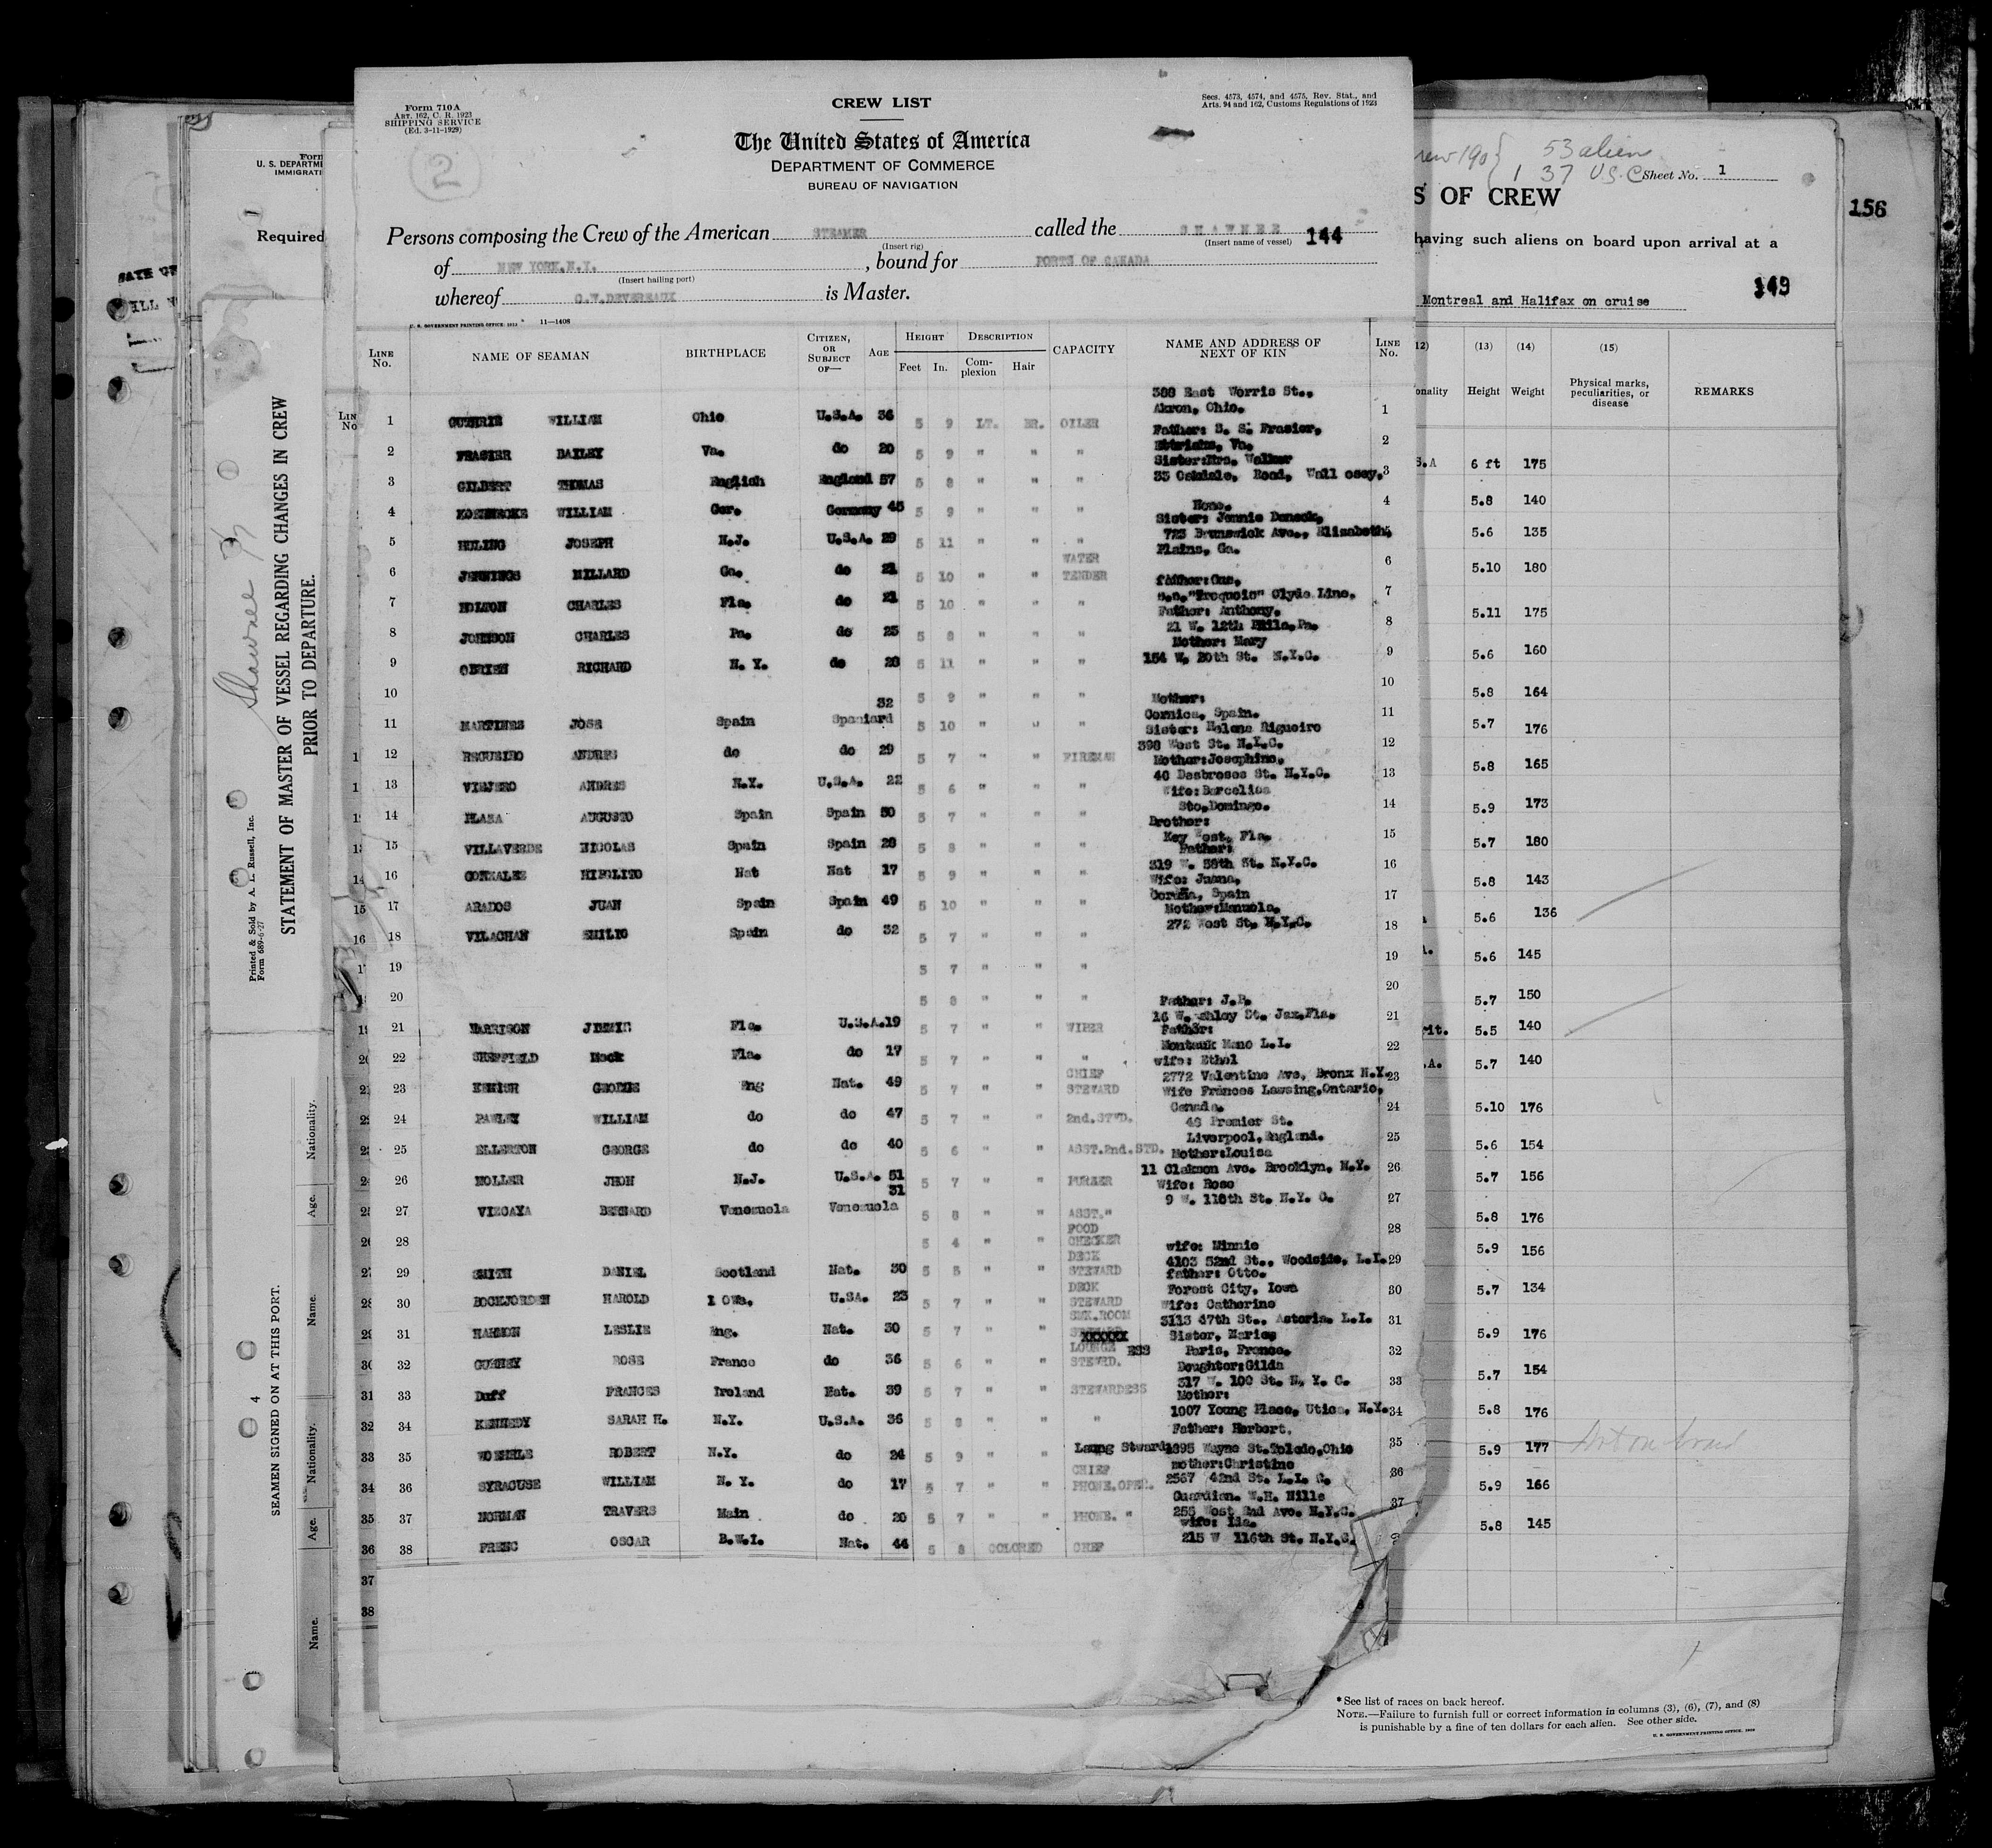 Form 710A
ART. 162, C. R. 1923
SHIPPING SERVICE
(Ed. 3-11-1929)
2
CREW LIST
Secs. 4573, 4574, and 4575, Rev. Stat., and
Arts. 94 and 162, Customs Regulations of 1923
The United States of America
DEPARTMENT OF COMMERCE
BUREAU OF NAVIGATION
Persons composing the Crew of the American STEAMER called the SHAWNEE 144
(Insert rig) (Insert name of vessel)
of NEW YORK,N.Y. , bound for PORTS OF CANADA
(Insert hailing port)
whereof C.W.DEVEREAUX is Master.
U. S. GOVERNMENT PRINTING OFFICE: 11—1406
LINE No. NAME OF SEAMAN BIRTHPLACE CITIZEN, OR SUBJECT OF— AGE HEIGHT Feet In. DESCRIPTION Complexion Hair CAPACITY NAME AND ADDRESS OF NEXT OF KIN LINE No.
388 East Worris St.,
1 GUTHRIE WILLIAM Ohio U.S.A. 36 5 9 LT. BR. OILER Akron, Ohio. 1
Father: S. S. Frasier,
2 FRASIER BAILEY Va. do 20 5 9 " " " Va. 2
Sister:Mrs. Walker
3 GILBERT THOMAS English England 57 5 8 " " " 33 Oakdale, Road, Wall asey, 3
4 WILLIAM Ger. Germany 45 5 9 " " " None. 4
Sister: Jennie
5 HULING JOSEPH N.J. U.S.A. 29 5 11 " " " 723 Brunswick Ave., Elizabeth, 5
Plains, Ga.
6 JENNINGS MILLARD Ga. do 21 5 10 " " WATER TENDER 6
father:Gus,
7 HOLTON CHARLES Fla. do 21 5 10 " " " s.s."Iroquois" Clyde Line. 7
Father: Anthony,
8 JOHNSON CHARLES Pa. do 25 5 8 " " " 21 W. 12th Phila.Pa. 8
Mother: Mary
9 OBRIEN RICHARD N. Y. do 28 5 11 " " " 154 W. 20th St. N.Y.C. 9
10 5 9 " " " 10
Mother:
11 MARTINES JOSE Spain Spaniard 32 5 10 " " " Cornica, Spain. 11
Sister: Helena Rigueiro
12 REGUEIRO ANDRES do do 29 5 7 " " FIREMAN 398 West St. N.Y.C. 12
Mother:Josephine,
13 VIEJERO ANDRES N.Y. U.S.A. 22 5 6 " " " 40 Desbroses St. N.Y.C. 13
Wife:Barcelisa
14 PLAZA AUGUSTO Spain Spain 50 5 7 " " " Sto.Domingo. 14
Brother:
15 VILLAVERDE NICOLAS Spain Spain 28 5 8 " " " Key West, Fla. 15
Father:
16 GONZALEZ HIPOLITO Nat Nat 17 5 9 " " " 319 W. 58th St. N.Y.C. 16
Wife: Juana,
17 ARADOS JUAN Spain Spain 49 5 10 " " " Coruna, Spain 17
Mother:Manuela.
18 VILACHAN EMILIO Spain do 32 5 7 " " " 272 West St. N.Y.C. 18
19 5 7 " " " 19
20 5 8 " " " 20
Father: J.P.
21 HARRISON JIMMIE Fla. U.S.A. 19 5 7 " " WIPER 16 W. Ashley St. Jax.Fla. 21
Father:
22 SHEFFIELD Mack Fla. do 17 5 7 " " " Montauk L.I. 22
wife: Ethel
23 KENISH GEORGE Eng Nat. 49 5 7 " " CHIEF STEWARD 2772 Valentine Ave, Bronx N.Y. 23
Wife Frances Lansing,Ontario,
24 PAWLEY WILLIAM do do 47 5 7 " " 2nd.STWD. Canada. 24
Premier St.
25 ELLERTON GEORGE do do 40 5 6 " " ASST.2nd.STD. Liverpool,England. 25
Mother:Louisa
26 MOLLER JHON N.J. U.S.A. 51 5 7 " " PURSER 11 Clakson Ave. Brooklyn, N.Y. 26
Wife: Rose
27 VIZCAYA BERNARD Venezuela Venezuela 31 5 8 " " ASST." 9 W. 118th St. N.Y. C. 27
28 5 4 " " FOOD CHECKER 28
wife: Minnie
29 SMITH DANIEL Scotland Nat. 30 5 5 " " DECK STEWARD 4103 52nd St., Woodside, L.I. 29
father: Otto.
30 HAROLD I Owa. U.SA. 23 5 7 " " DECK STEWARD Forest City, Iowa 30
Wife: Catherine
31 HARMON LESLIE Eng. Nat. 30 5 7 " " SMK.ROOM 3113 47th St., Astoria. L.I. 31
Sister, Marie,
32 GURNEY ROSE France do 36 5 6 " " LOUNGE STEWRD. ESS Paris, France. 32
Daughter:Gilda
33 Duff FRANCES Ireland Nat. 39 5 7 " " STEWARDESS 317 W. 100 St. N. Y. C. 33
Mother:
34 KENNEDY SARAH H. N.Y. U.S.A. 36 5 8 " " " 1007 Young Place, Utica, N.Y. 34
Father: Herbert,
35 ROBERT N.Y. do 24 5 9 " " Laung Stward 1395 Wayne St.Toledo,Ohio 35
mother:Christine
36 SYRACUSE WILLIAM N. Y. do 17 5 7 " " CHIEF PHONE.OPER. 2567 42nd St. L.I. C. 36
Guardian. W.H. Hills
37 NORMAN TRAVERS Main do 20 5 7 " " PHONE. " 255 West 2nd Ave. N.Y.C. 37
wife: Ida.
38 FRENC OSCAR B.W.I. Nat. 44 5 8 COLORED CHEF 215 W 116th St. N.Y.C.
U. S. DEPARTM
IMMIGRATI
Required
Shawnee
STATEMENT OF MASTER OF VESSEL REGARDING CHANGES IN CREW
PRIOR TO DEPARTURE.
Printed & Sold by A. L. Russell, Inc.
Form 689-6-27
SEAMEN SIGNED ON AT THIS PORT.
Name. Age. Nationality. Name. Age. Nationality.
53 aliens
137 U.S.C
Sheet No. 1
S OF CREW
156
having such aliens on board upon arrival at a
149
Montreal and Halifax on cruise
12) (13) (14) (15)
onality Height Weight Physical marks, peculiarities, or disease REMARKS
S.A 6 ft 175
5.8 140
5.6 135
5.10 180
5.11 175
5.6 160
5.8 164
5.7 176
5.8 165
5.9 173
5.7 180
5.8 143
5.6 136
5.6 145
5.7 150
rit. 5.5 140
.A. 5.7 140
5.10 176
5.6 154
5.7 156
5.8 176
5.9 156
5.7 134
5.9 176
5.7 154
5.8 176
5.9 177 Not on board
5.9 166
5.8 145
*See list of races on back hereof.
NOTE.—Failure to furnish full or correct information in columns (3), (6), (7), and (8)
is punishable by a fine of ten dollars for each alien. See other side.
U. S. GOVERNMENT PRINTING OFFICE